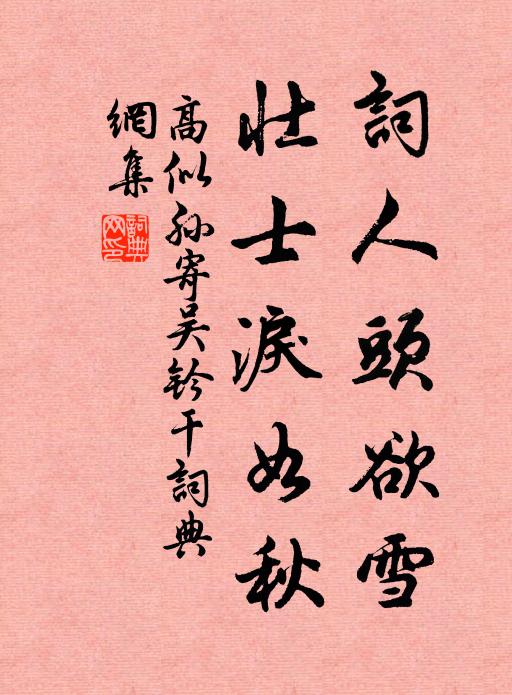 詞人頭欲雪
壯士淚如秋
高似孫寄吳鈐干詞典
網集
詞典
网印